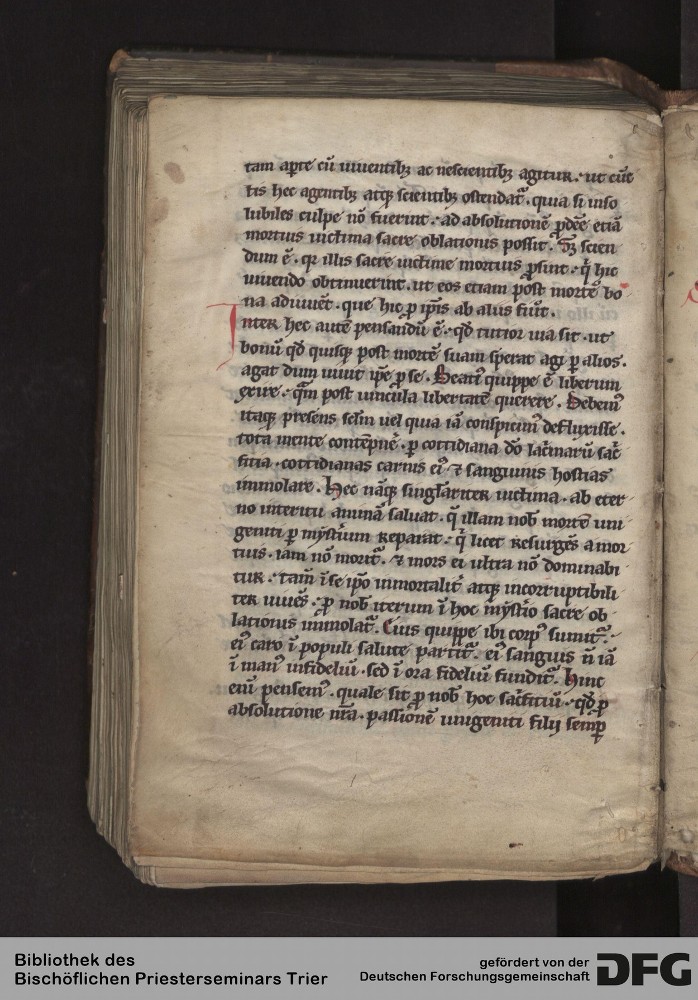 tam apte cū uiuentibꝫ ac nescientibꝫ agitur. ut cūc
tis hec agentibꝫ atqꝫ scientibꝫ ostendat᷑. quia si inso
lubiles culpe nō fuerint. ad absolutionē ꝓdēē etiā
mortuis uictima sacre oblationis possit. Sꝫ scien
dum ē. qꝛ illis sacre uictime mortuis ꝓsint. q̇ hic
uiuendo obtinuerint. ut eos etiam post mortē bo
na adiuuēt. que hic ꝓ ip̄is ab aliis fiūt.
Inter hec autē pensandū ē. qd̓ tutior uia sit. ut
bonū qd̓ quisqꝫ post mortē suam sperat agi ꝑ alios.
agat dum uiuit ip̄e ꝓ se. Beatiꝰ quippe ē liberum
exire. qm̄ post uincula libertatē querere. Debemꝰ
itaqꝫ presens sclm̄ uel quia iā conspicimꝰ defluxisse.
tota mente contēpnē. ꝑ cottidiana dō lac̄marū sac̄
fitia. cottidianas carnis eiꝰ ⁊ sanguinis hostias
immolare. Hec nāqꝫ singlariter uictima. ab eter
no interitu animā saluat. q̄ illam nob̄ mortē uni
geniti ꝑ myst̄ium reparat. q̇ licet resurgēs a mor
tuis. iam nō morit᷑. ⁊ mors ei ultra nō dominabi
tur. tam̄ ī se ip̄o inmortalit̄ atqꝫ incorruptibili
ter uiuēs. ꝓ nob̄ iterum ī hoc myst̄io sacre ob
lationis immolat᷑. Eius quippe ibi corpꝰ sumit᷑.
eiꝰ caro ī populi salute partit᷑. eiꝰ sanguis n̄ iā
ī manꝰ infideliū. sed ī ora fideliū fundit᷑. Hinc
eiū pensemꝰ. quale sit ꝓ nob̄ hoc sac̄fitiū. qd̓ ꝓ
absolutione nr̄a. passionē unigeniti filij semꝑ
Bibliothek des
Bischöflichen Priesterseminars Trier
gefördert von der
Deutschen Forschungsgemeinschaft
DFG